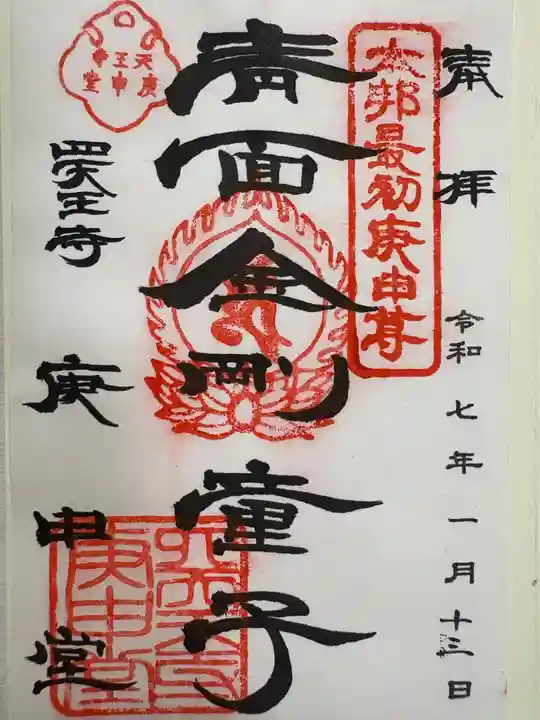 奉拝
令和七年一月十三日
本邦最初庚申尊
青面金剛童子
四天王寺
庚申堂
四天王寺
庚申堂